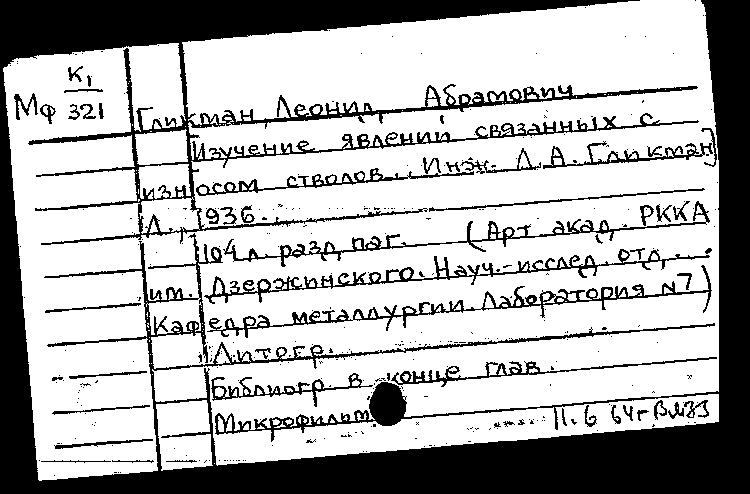 К1
Мф 321
Гликман, Леонид Абрамович
Изучение явлений связанных с
износом стволов.. Инж. Л.А. Гликман]
Л., 1936..
104 л. разд. паг. (Арт акад. РККА
им. Дзержинского. Науч.-исслед. отд...
Кафедра металлургии. Лаборатория №7)
Литогр.
Библиогр. в конце глав.
Микрофильм
11.6 64г